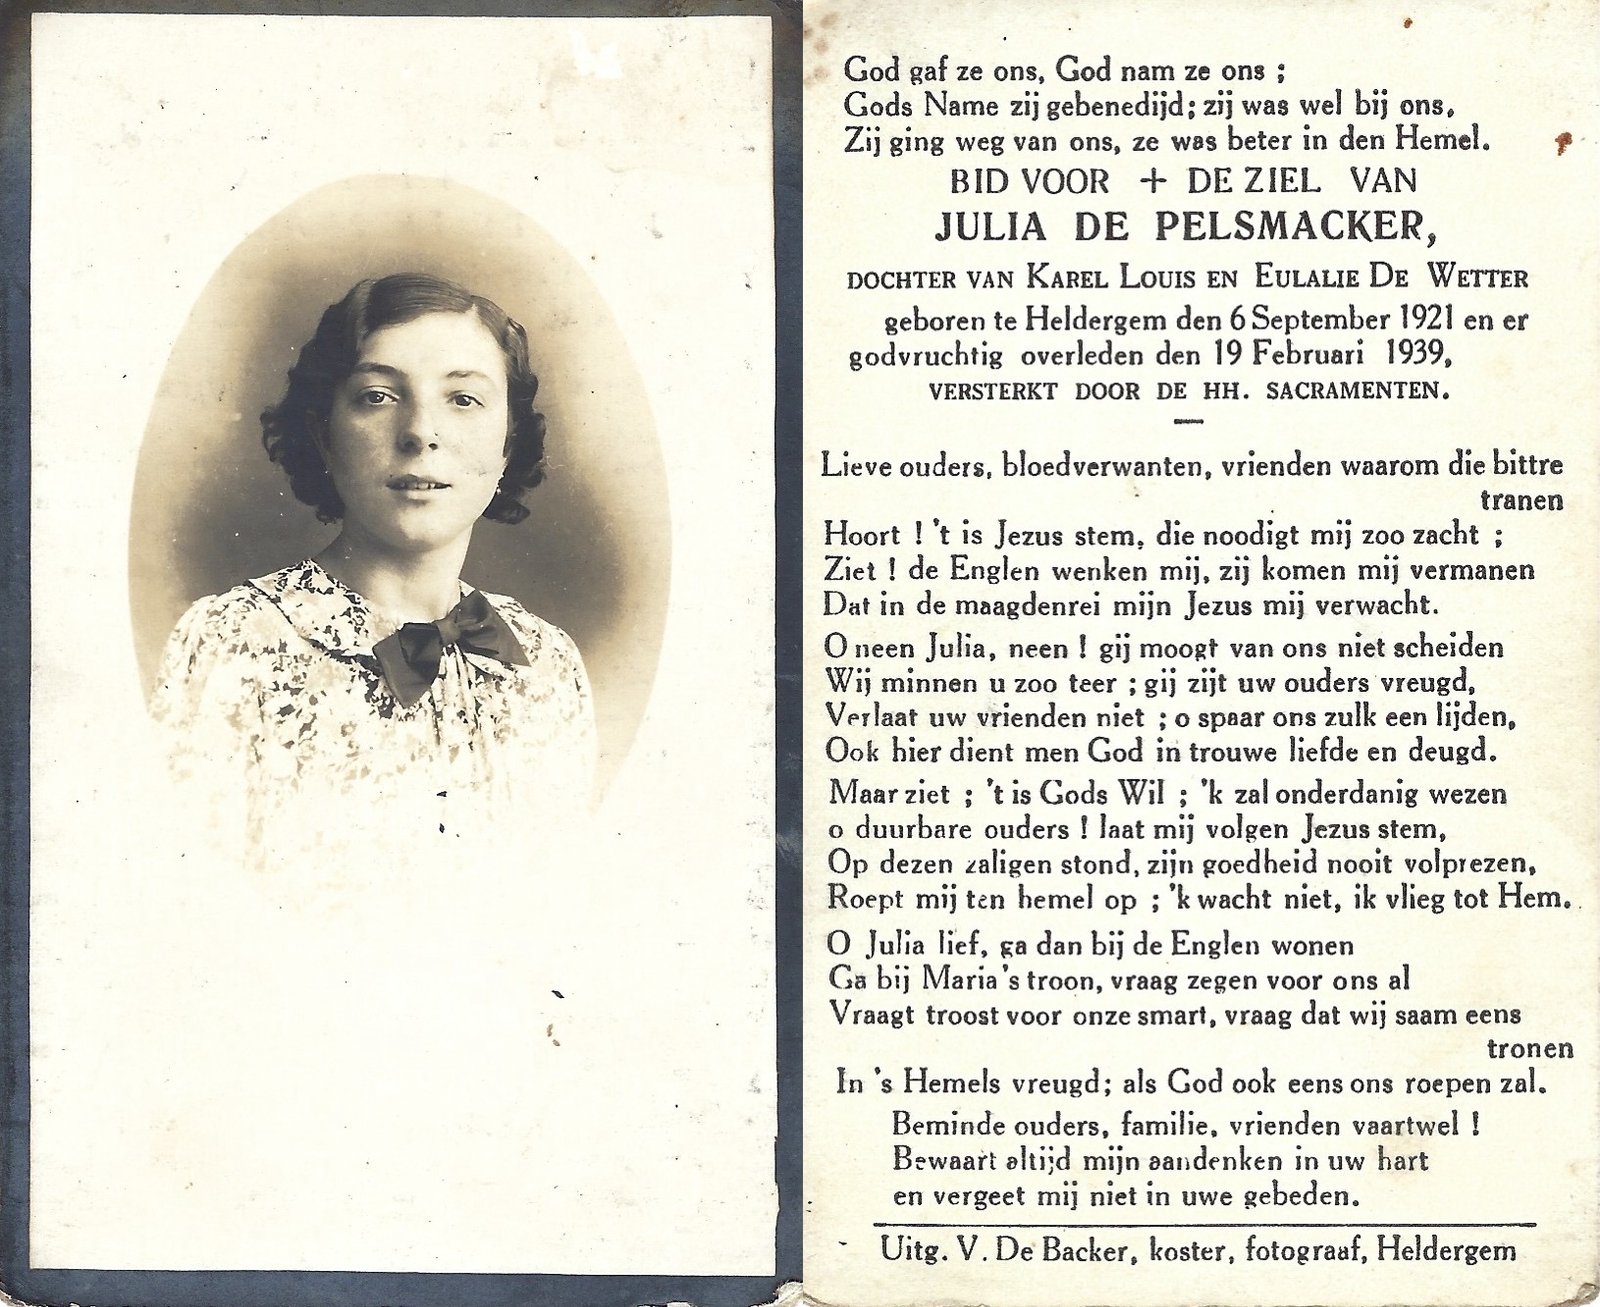 God gaf ze ons, God nam ze ons ;
Gods Name zij gebenedijd; zij was wel bij ons,
Zij ging weg van ons, ze was beter in den Hemel.
BID VOOR + DE ZIEL VAN
JULIA DE PELSMACKER,
DOCHTER VAN KAREL LOUIS EN EULALIE DE WETTER
geboren te Heldergem den 6 September 1921 en er
godvruchtig overleden den 19 Februari 1939,
VERSTERKT DOOR DE HH. SACRAMENTEN.
Lieve ouders, bloedverwanten, vrienden waarom die bittre
tranen
Hoort ! 't is Jezus stem, die noodigt mij zoo zacht ;
Ziet ! de Englen wenken mij, zij komen mij vermanen
Dat in de maagdenrei mijn Jezus mij verwacht.
O neen Julia, neen ! gij moogt van ons niet scheiden
Wij minnen u zoo teer ; gij zijt uw ouders vreugd,
Verlaat uw vrienden niet ; o spaar ons zulk een lijden,
Ook hier dient men God in trouwe liefde en deugd.
Maar ziet ; 't is Gods Wil ; 'k zal onderdanig wezen
o duurbare ouders ! laat mij volgen Jezus stem,
Op dezen zaligen stond, zijn goedheid nooit volprezen,
Roept mij ten hemel op ; 'k wacht niet, ik vlieg tot Hem.
O Julia lief, ga dan bij de Englen wonen
Ga bij Maria's troon, vraag zegen voor ons al
Vraagt troost voor onze smart, vraag dat wij saam eens
tronen
In 's Hemels vreugd; als God ook eens ons roepen zal.
Beminde ouders, familie, vrienden vaartwel !
Bewaart altijd mijn aandenken in uw hart
en vergeet mij niet in uwe gebeden.
Uitg. V. De Backer, koster, fotograaf, Heldergem